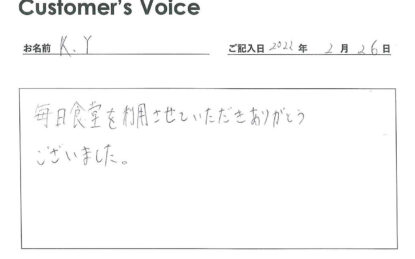 Customer's Voice
お名前 K.Y ご記入日 2022 年 2 月 26 日
毎日食堂を利用させていただきありがとう
ございました。